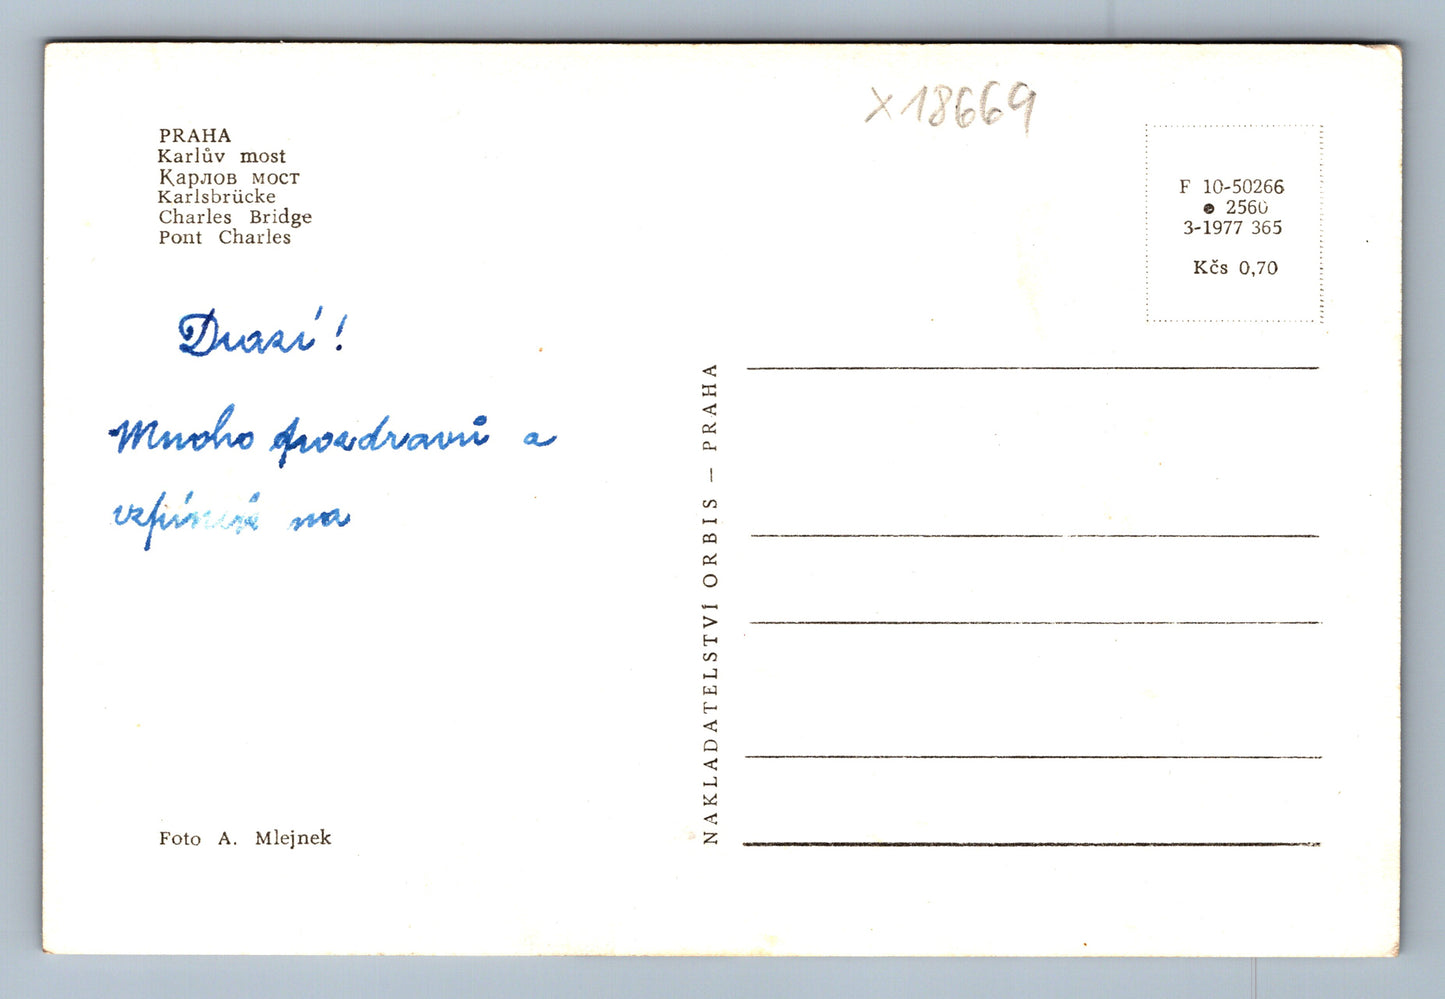 x18669
PRAHA
Karlův most
Карлов мост
Karlsbrücke
Charles Bridge
Pont Charles
F 10-50266
2560
3-1977 365
Kčs 0,70
Drazí!
Mnoho pozdravů a
na
NAKLADATELSTVÍ ORBIS — PRAHA
Foto A. Mlejnek